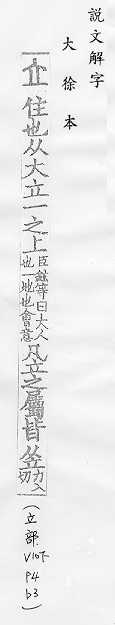 說文解字
大徐本
立 住也从大立一之上臣鉉等曰大人也一地也會意凡立之屬皆从立力入切
(立部
V10下
P4
b3)